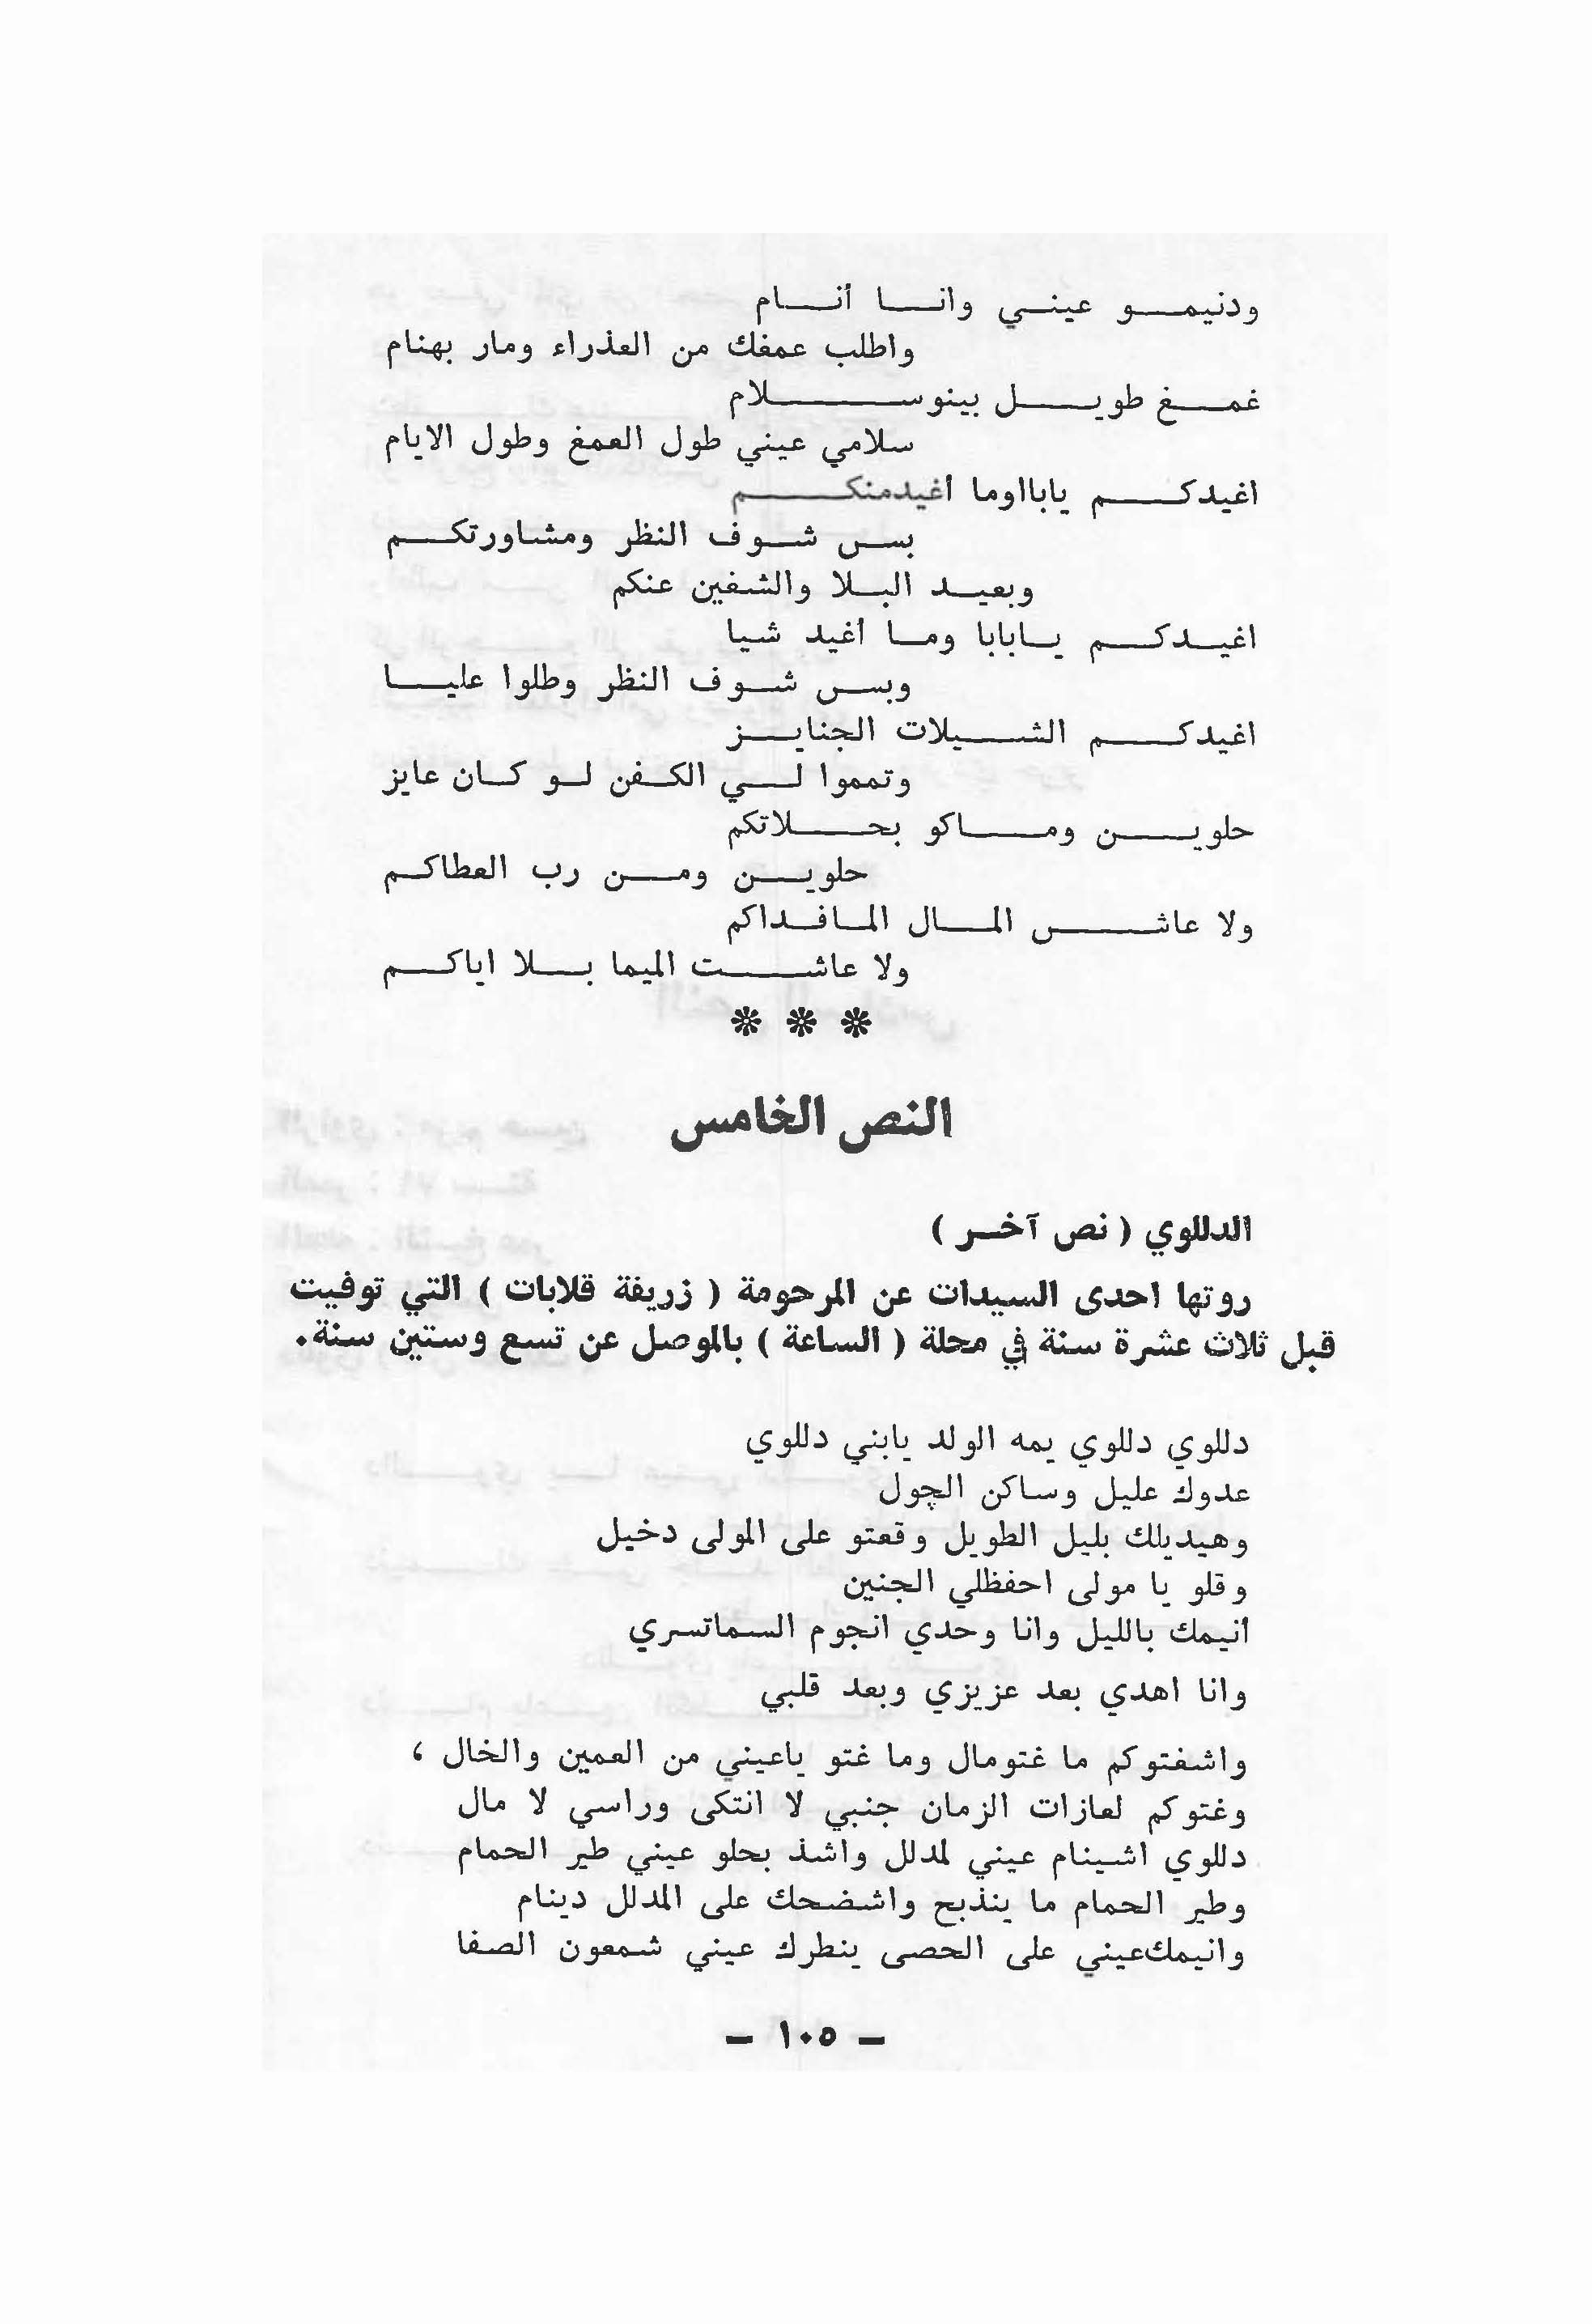 ودنيمو عيني وانا أنام
واطلب عمغك من العذراء ومار بهنام
غمغ طويل بينو سلام
سلامي عيني طول العمغ وطول الايام
اغيدكم يابااوما أغيدمنكم
بس شوف النظر ومشاورتكم
وبعيد البلا والشغين عنكم
اغيدكم يابابا وما أغيد شيا
وبس شوف النظر وطلوا عليا
اغيدكم الشيلات الجنايز
وتمموا لي الكفن لو كان عايز
حلوين وماكو بحلاتكم
حلوين ومن رب العطاكم
ولا عاش المال المافداكم
ولا عاشت الميما بلا اياكم
❊ ❊ ❊
النص الخامس
الدللوي ( نص آخر )
روتها احدى السيدات عن المرحومة ( زريفة قلابات ) التي توفيت
قبل ثلاث عشرة سنة في محلة ( الساعة ) بالموصل عن تسع وستين سنة.
دللوي دللوي يمه الولد يابني دللوي
عدوك عليل وساكن الچول
وهيديلك بليل الطويل وقعتو على المولى دخيل
وقلو يا مولى احفظلي الجنين
أنيمك بالليل وانا وحدي انجوم السماتسري
وانا اهدي بعد عزيزي وبعد قلبي
واشغتوكم ما غتومال وما غتو ياعيني من العمين والخال ،
وغتوكم لعازات الزمان جنبي لا انتكى وراسي لا مال
دللوي اشينام عيني لمدلل واشذ بحلو عيني طير الحمام
وطير الحمام ما ينذبح واشضحك على المدلل دينام
وانيمكعيني على الحصى ينطرك عيني شمعون الصفا
— ١٠٥ —